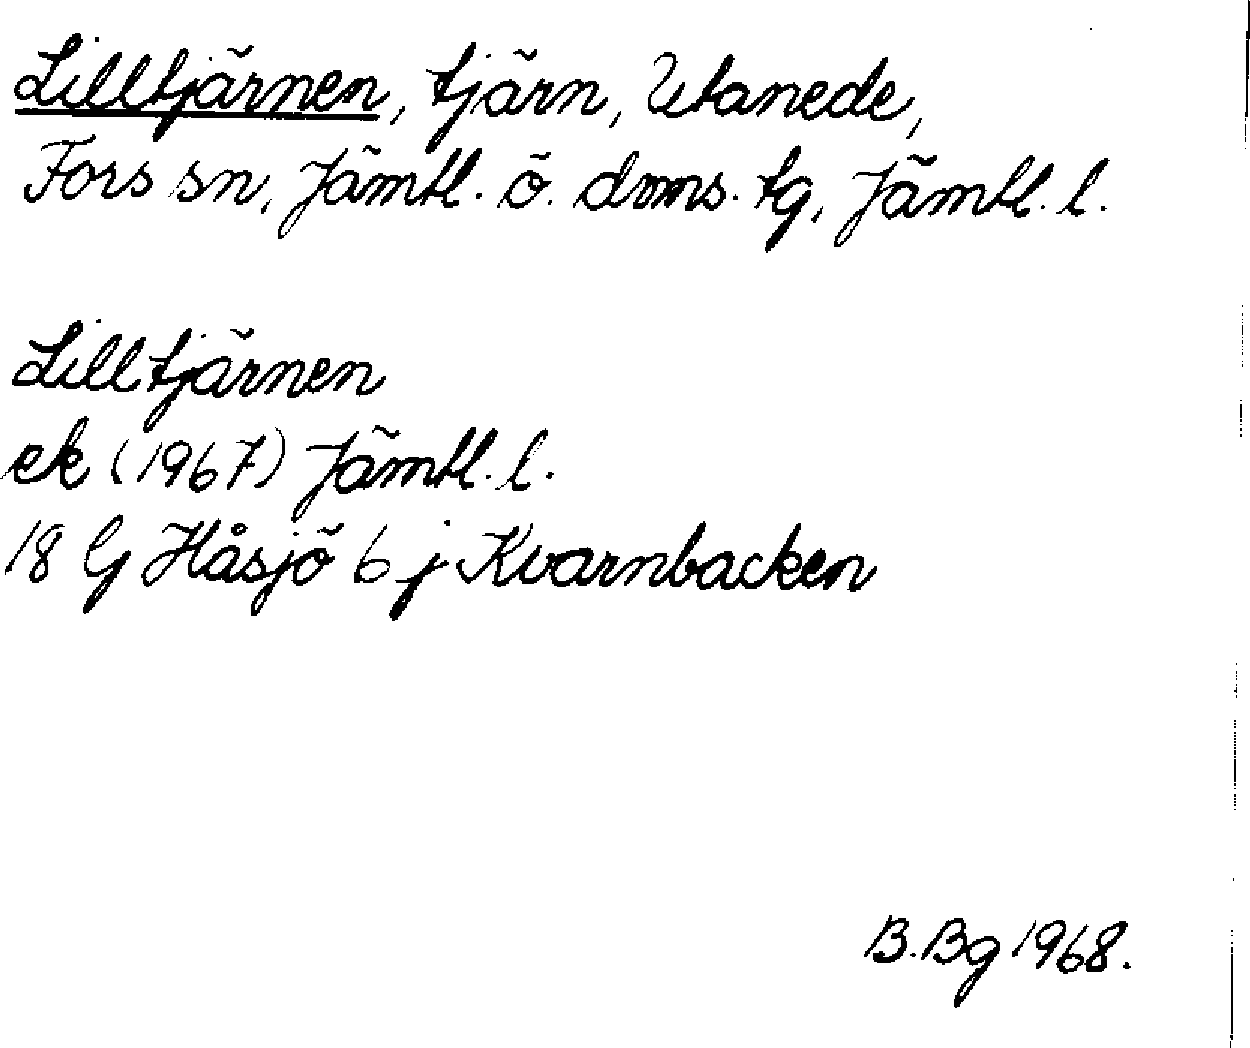 Lilltjärnen, tjärn, Utanede,
Fors sn, Jämtl. ö. doms. tg, Jämtl. l.
Lilltjärnen
ek (1967) Jämtl. l.
18 G Håsjö 6 j Kvarnbacken
B. Bg 1968.